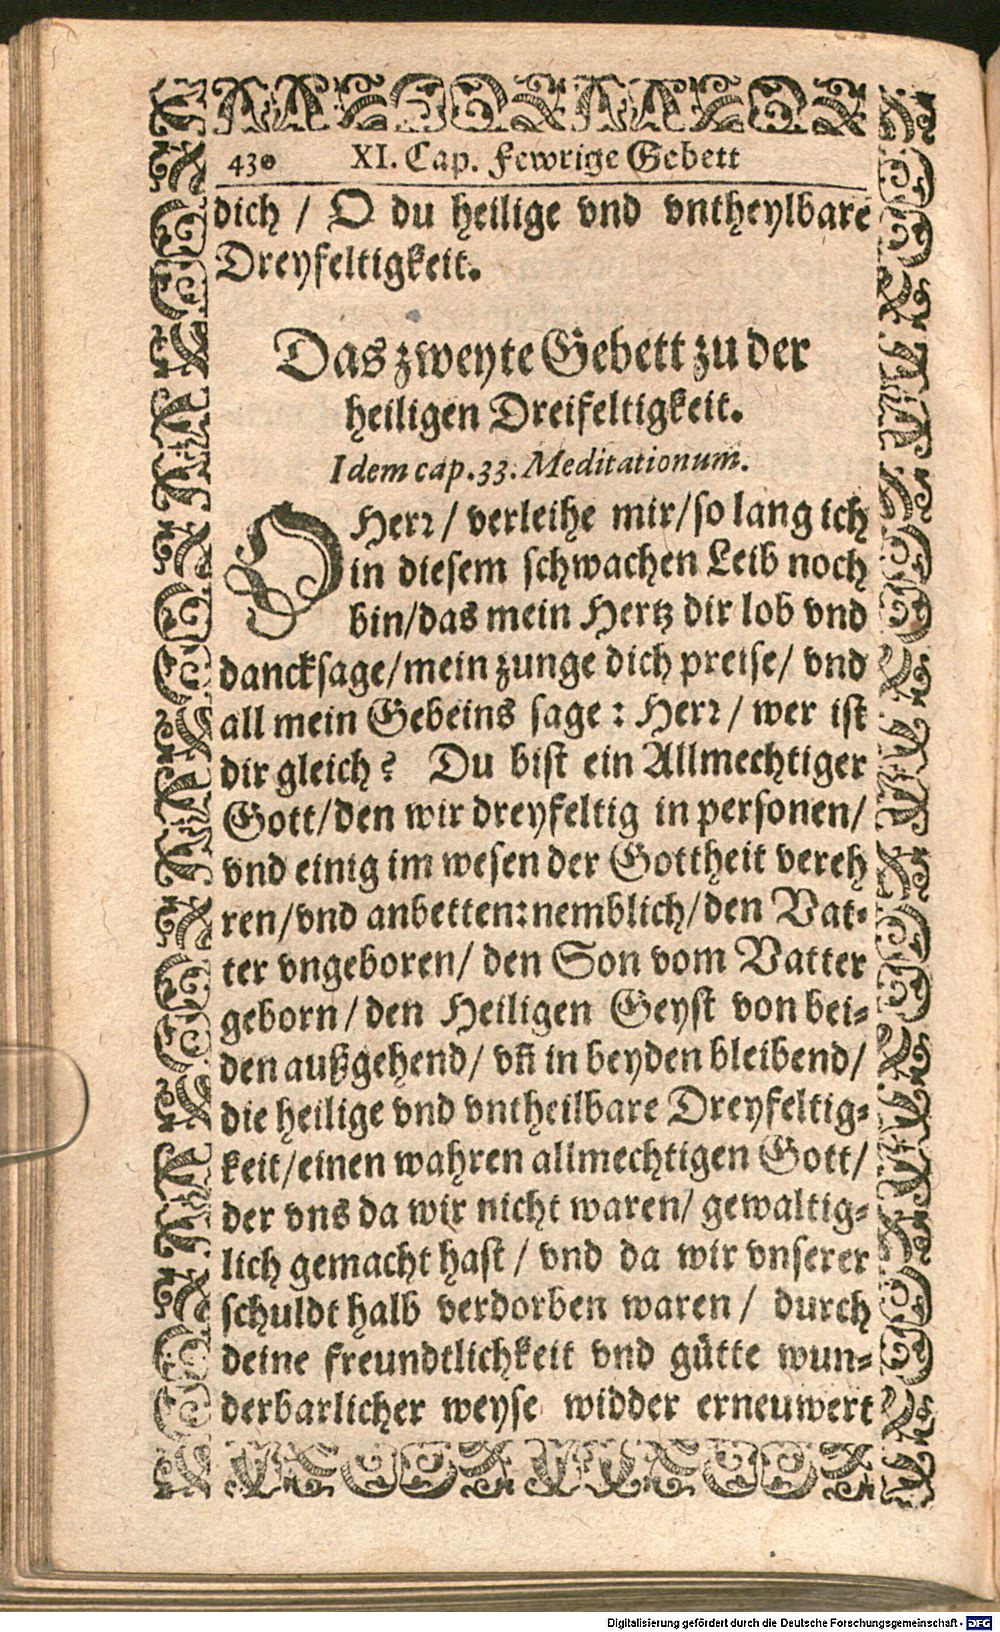 430 XI. Cap. Fewrige Gebett
dich / O du heilige vnd vntheylbare
Dreyfeltigkeit.
Das zweyte Gebett zu der
heiligen Dreifeltigkeit.
Idem cap. 33. Meditationum.
O Herꝛ / verleihe mir / so lang ich
in diesem schwachen Leib noch
bin / das mein Hertz dir lob vnd
dancksage / mein zunge dich preise / vnd
all mein Gebeins sage : Herꝛ / wer ist
dir gleich? Du bist ein Allmechtiger
Gott / den wir dreyfeltig in personen /
vnd einig im wesen der Gottheit vereh
ren / vnd anbetten: nemblich / den Vat⸗
ter vngeboren / den Son vom Vatter
geborn / den Heiligen Geyst von bei⸗
den außgehend / vñ in beyden bleibend /
die heilige vnd vntheilbare Dreyfeltig⸗
keit / einen wahren allmechtigen Gott /
der vns da wir nicht waren / gewaltig⸗
lich gemacht hast / vnd da wir vnserer
schuldt halb verdorben waren / durch
deine freundtlichkeit vnd gütte wun⸗
derbarlicher weyse widder erneuwert
Digitalisierung gefördert durch die Deutsche Forschungsgemeinschaft - DFG